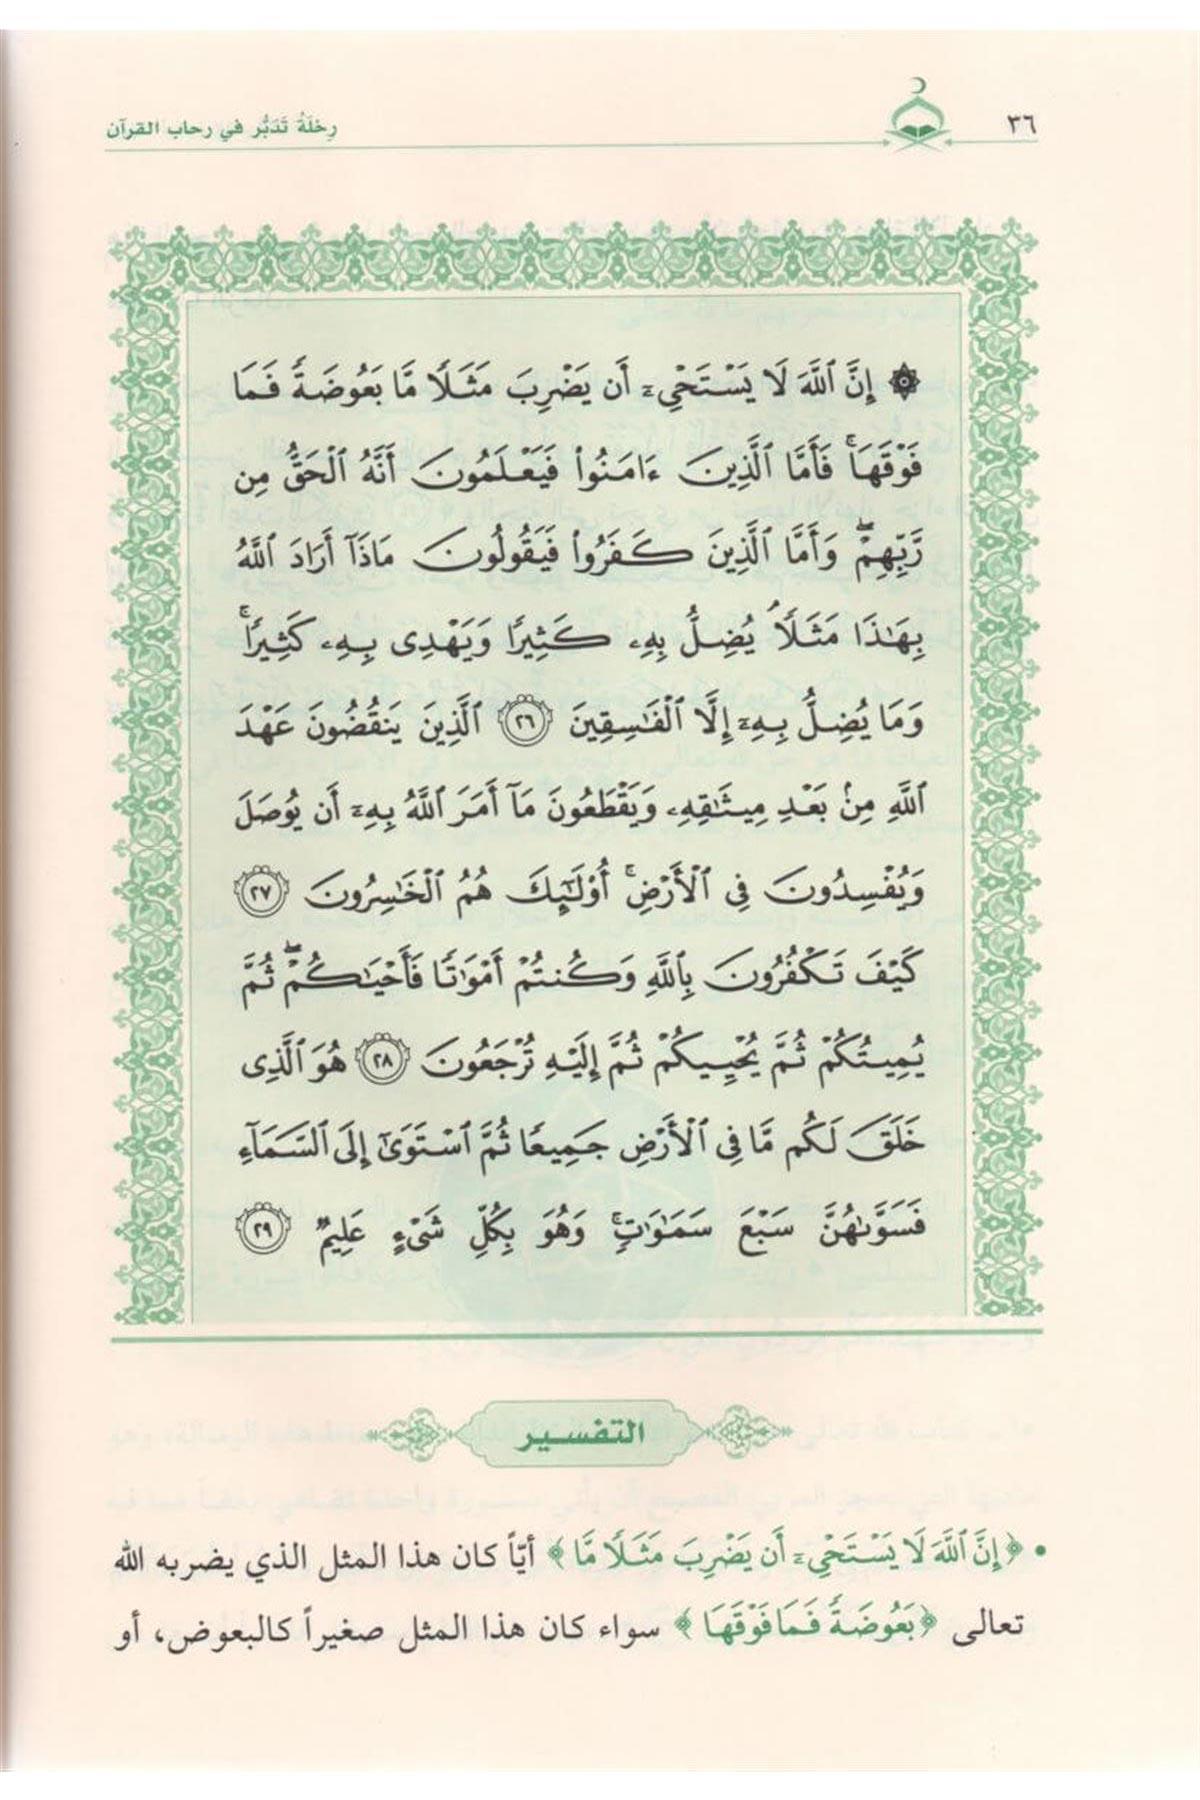 ٣٦
رِحْلَةُ تَدَبُّر في رحاب القرآن
۞ إِنَّ ٱللَّهَ لَا يَسْتَحْىِۦٓ أَن يَضْرِبَ مَثَلًا مَّا بَعُوضَةً فَمَا
فَوْقَهَا ۚ فَأَمَّا ٱلَّذِينَ ءَامَنُوا۟ فَيَعْلَمُونَ أَنَّهُ ٱلْحَقُّ مِن
رَّبِّهِمْ ۖ وَأَمَّا ٱلَّذِينَ كَفَرُوا۟ فَيَقُولُونَ مَاذَآ أَرَادَ ٱللَّهُ
بِهَـٰذَا مَثَلًا ۘ يُضِلُّ بِهِۦ كَثِيرًا وَيَهْدِى بِهِۦ كَثِيرًا ۚ
وَمَا يُضِلُّ بِهِۦٓ إِلَّا ٱلْفَـٰسِقِينَ ٢٦ ٱلَّذِينَ يَنقُضُونَ عَهْدَ
ٱللَّهِ مِنۢ بَعْدِ مِيثَـٰقِهِۦ وَيَقْطَعُونَ مَآ أَمَرَ ٱللَّهُ بِهِۦٓ أَن يُوصَلَ
وَيُفْسِدُونَ فِى ٱلْأَرْضِ ۚ أُو۟لَـٰٓئِكَ هُمُ ٱلْخَـٰسِرُونَ ٢٧
كَيْفَ تَكْفُرُونَ بِٱللَّهِ وَكُنتُمْ أَمْوَٰتًا فَأَحْيَـٰكُمْ ۖ ثُمَّ
يُمِيتُكُمْ ثُمَّ يُحْيِيكُمْ ثُمَّ إِلَيْهِ تُرْجَعُونَ ٢٨ هُوَ ٱلَّذِى
خَلَقَ لَكُم مَّا فِى ٱلْأَرْضِ جَمِيعًا ثُمَّ ٱسْتَوَىٰٓ إِلَى ٱلسَّمَآءِ
فَسَوَّىٰهُنَّ سَبْعَ سَمَـٰوَٰتٍ ۚ وَهُوَ بِكُلِّ شَىْءٍ عَلِيمٌ ٢٩
التفسير
• ﴿إِنَّ ٱللَّهَ لَا يَسْتَحْىِۦٓ أَن يَضْرِبَ مَثَلًا مَّا﴾ أيّاً كان هذا المثل الذي يضربه الله
تعالى ﴿بَعُوضَةً فَمَا فَوْقَهَا﴾ سواء كان هذا المثل صغيراً كالبعوض، أو